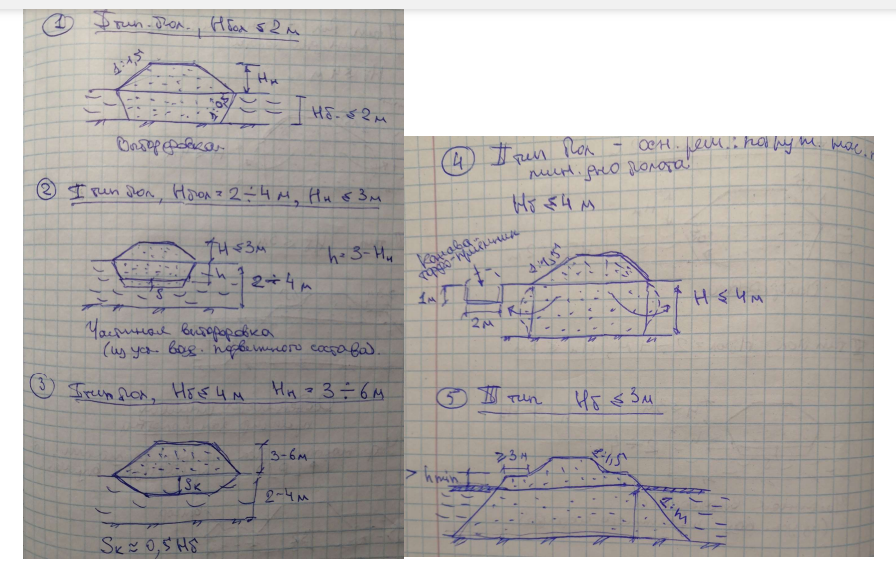 ① I тип. бол., Hбол ≤ 2 м
1:1,5
Hн
1:0,5
Hб. ≤ 2 м
Выторфовка
② I тип бол, Hбол = 2 ÷ 4 м, Hн ≤ 3 м
H ≤ 3 м
h = 3 - Hн
h
2 ÷ 4 м
S
Частичная выторфовка
(из усл. воз. подвижного состава).
③ I тип бол, Hб ≤ 4 м Hн = 3 ÷ 6 м
3-6 м
Sк
2-4 м
Sк ≈ 0,5 Hб
④ II тип бол - осн. реш.: погруж.
мин. дно болота
Hб ≤ 4 м
Канава-
торфо-приёмник
1:1,5
1м
2м
H ≤ 4 м
⑤ III тип Hб ≤ 3 м
≥3 м
1:1,5
> hmin
1:m